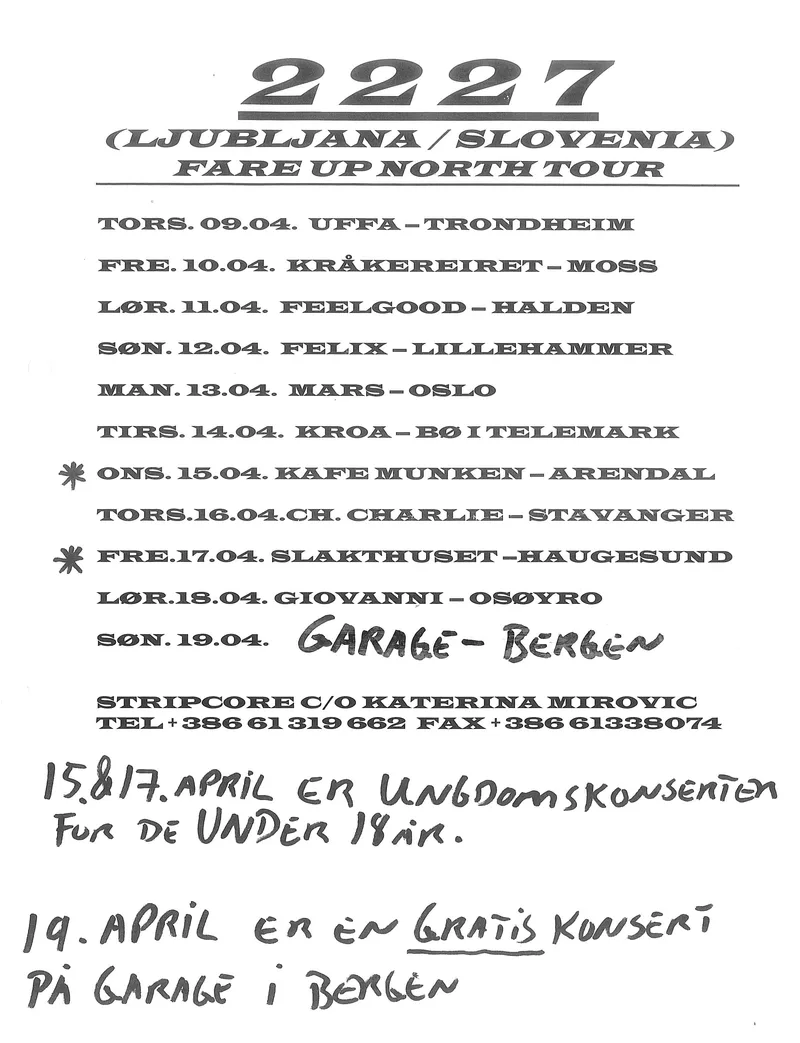 2227
(LJUBLJANA / SLOVENIA)
FARE UP NORTH TOUR
TORS. 09.04. UFFA – TRONDHEIM
FRE. 10.04. KRÅKEREIRET – MOSS
LØR. 11.04. FEELGOOD – HALDEN
SØN. 12.04. FELIX – LILLEHAMMER
MAN. 13.04. MARS – OSLO
TIRS. 14.04. KROA – BØ I TELEMARK
* ONS. 15.04. KAFE MUNKEN – ARENDAL
TORS.16.04.CH. CHARLIE – STAVANGER
* FRE.17.04. SLAKTHUSET –HAUGESUND
LØR.18.04. GIOVANNI – OSØYRO
SØN. 19.04. GARAGE – BERGEN
STRIPCORE C/O KATERINA MIROVIC
TEL +386 61 319 662 FAX +386 61338074
15.&17. APRIL ER UNGDOMSKONSERTER
FOR DE UNDER 18 ÅR.
19. APRIL ER EN GRATIS KONSERT
PÅ GARAGE i BERGEN